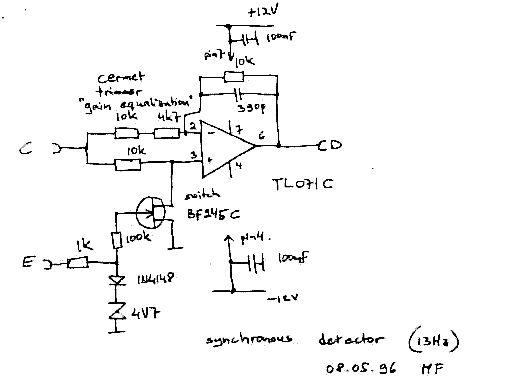 +12V
100nF
pin7
10k
cermet
trimmer
"gain equalization"
10k 4k7
390p
2 7 6
C 10k 3 4 D
TL071C
switch
BF245C
100k
1k
E
pin4.
100nF
1N4148
-12V
4V7
synchronous detector (13Hz)
08.05.96 MF